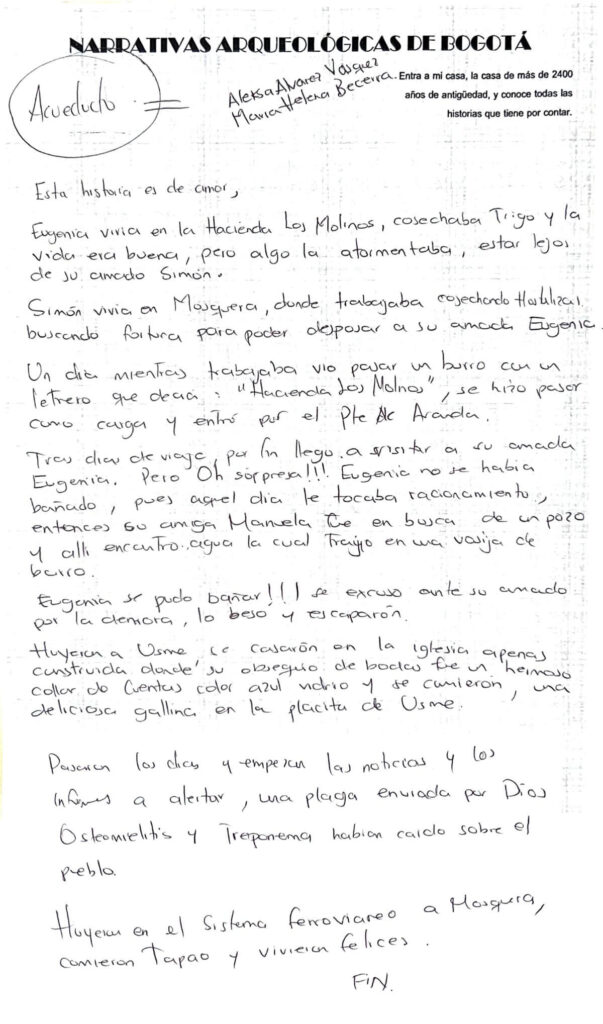 NARRATIVAS ARQUEOLÓGICAS DE BOGOTÁ
Acueducto
Aleksa Alvarez Vásquez
Maria Helena Becerra.
Entra a mi casa, la casa de más de 2400
años de antigüedad, y conoce todas las
historias que tiene por contar.
Esta historia es de amor,
Eugenia vivia en la Hacienda Los Molinos, cosechaba Trigo y la
vida era buena, pero algo la atormentaba, estar lejos
de su amado Simón.
Simón vivia en Mosquera, donde trabajaba cosechando
buscando fortuna para poder desposar a su amada Eugenia.
Un dia mientras trabajaba vio pasar un burro con un
letrero que decia: "Hacienda Los Molinos", se hizo pasar
como carga y entró por el Pte de Aranda.
Tres dias de viaje, por fin llego a visitar a su amada
Eugenia. Pero Oh sorpresa!!! Eugenia no se habia
bañado, pues aquel dia le tocaba racionamiento,
entonces su amiga Manuela fue en busca de un pozo
y alli encontro agua la cual Trajo en una vasija de
barro.
Eugenia se pudo bañar!!! se excuso ante su amado
por la demora, lo besó y escaparón.
Huyeron a Usme se casarón en la iglesia apenas
construida donde su obsequio de bodas fue un hermoso
collar de cuentas color azul vidrio y se comieron, una
deliciosa gallina en la placita de Usme.
Pasaron los dias y empezan las noticias y los
informes a alertar, una plaga enviada por Dios
Osteomielitis y Treponema habian caido sobre el
pueblo.
Huyeron en el Sistema ferroviareo a Mosquera,
comieron Tapao y vivieron felices.
FIN.